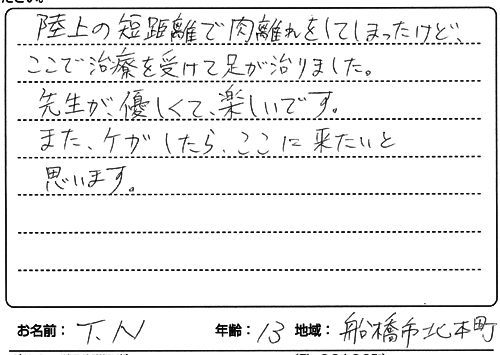 ださい。
陸上の短距離で肉離れをしてしまったけど、
ここで治療を受けて足が治りました。
先生が、優しくて、楽しいです。
また、ケガしたら、ここに来たいと
思います。
お名前：T.N 年齢：13 地域：船橋市北本町